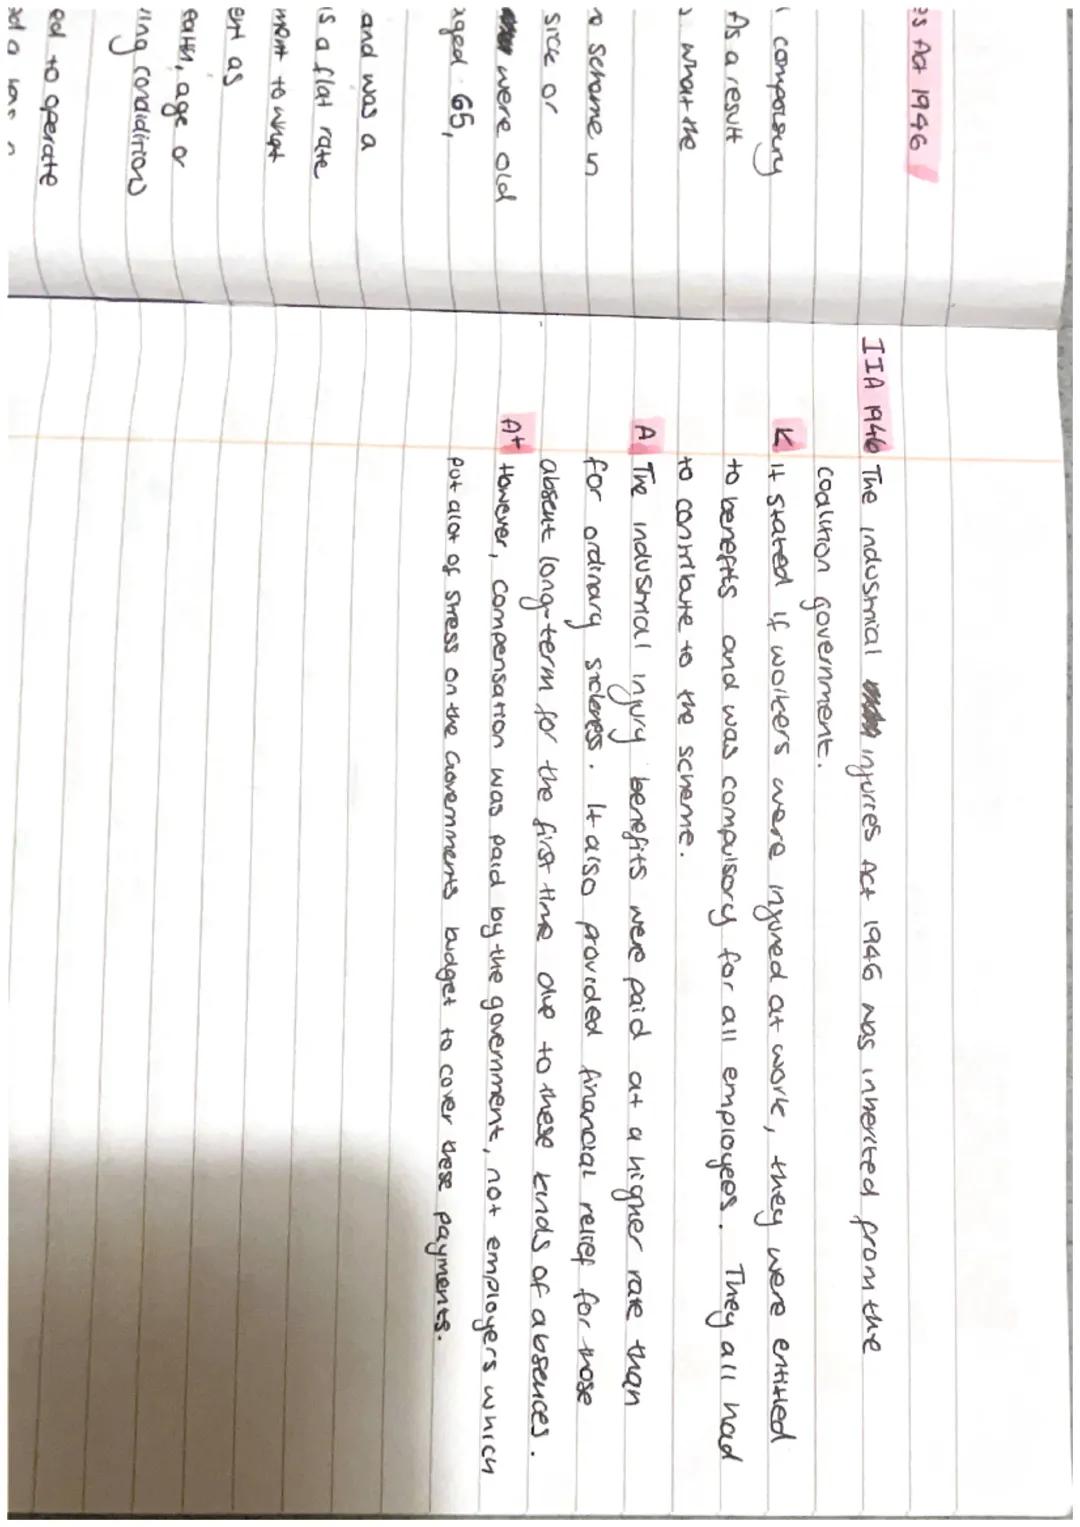 es Act 1946
compolsery
As a result
what the
scheme in
sick or
were old
aged 65,
and was a
is a flat rate
ment to what
ent as
ealth, age or
ling condidition)
ed to operate
IIA 1946 The industrial injuries Act 1946 was inherited from the
coalition government.
K It stated if workers were injured at work, they were entitled
to benefits and was compulsory for all employees. They all had
to contribute to the scheme.
A The industrial injury benefits were paid at a higher rate than
for ordinary sickness. It also provided financial relief for those
absent long-term for the first time due to these kinds of absences.
A+ However, compensation was paid by the government, not employers which
put alot of stress on the Governments budget to cover these payments.